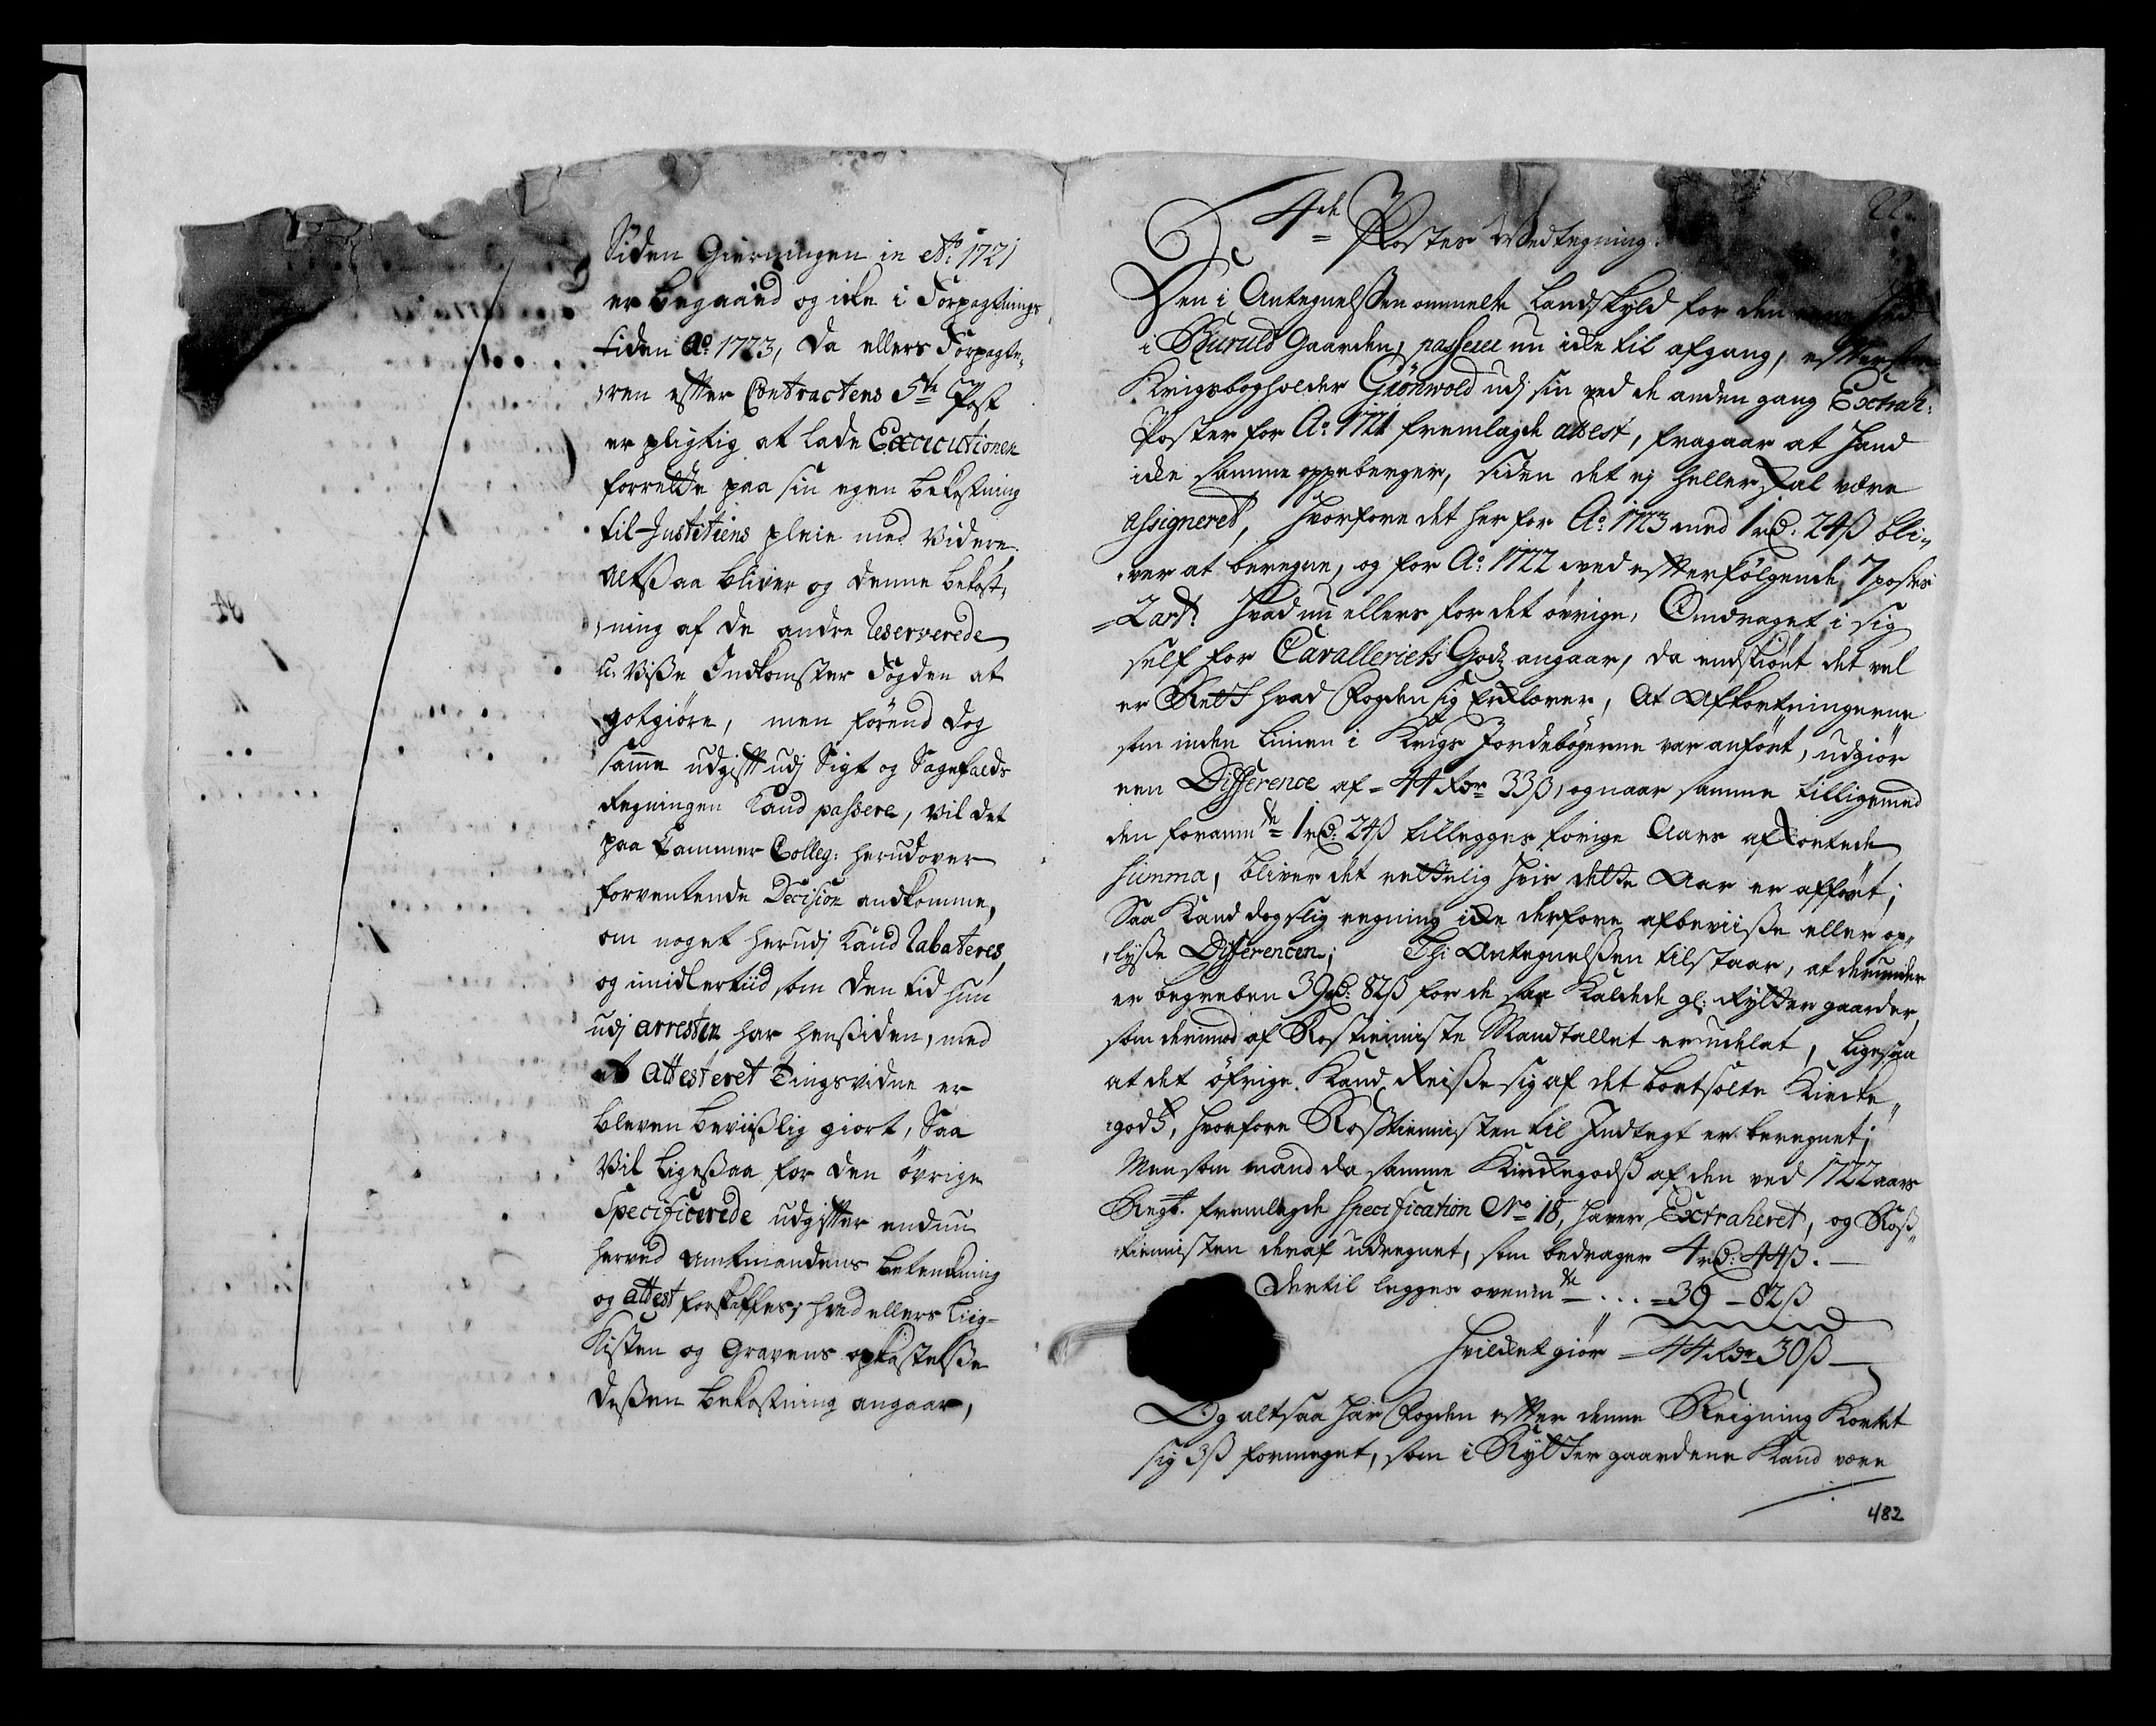 Siden Gierningen in Aº: 1721
er begaaed og icke i Forpagtnings
tiden Aº. 1723, da ellers Forpagte,,
,,ren efter Contractens 5te Post
er pligtig at lade Executionen
forrette paa sin egen bekostning
til Justitiens pleie med videre.
altsaa bliver og denne bekost,,
,,ning af de andre Reserverede
u-visse Indkomster Fogden at
gotgiøre, men førend dog
samme udgift udj Sigt og Sagefalds
Regningen kand passere, vil det
paa Cammer Colleg: herudover
forventende Decision andkomme,
om noget herudj kand Rabateres
og imidlertiid, som den tid hun
udj arresten har hensiden, med
et attesteret Tingsvidne er
bleven beviislig giort, Saa
vil ligesaa for den øvrige
Specificerede udgifter endnu
herved Amtmandens betenkning
og attest forskaffes; hvad ellers Liig-
kisten og Gravens opkastelse
dessen bekostning angaar,
22.
4de Postes Vedtegning.
Den i Antegnelssen ommelte Landskyld for den
i Buruld gaarden, passerer nu icke til afgang, efterson
Krigsbogholder Grönwold udj sin ved de anden gang Extrah:
Poster for Aº: 1721 fremlagde attest, fragaar at hand
icke samme oppeberger, siden det ej heller skal være
assigneret, hvorfore det her for Aº: 1723 med 1 rd: 24 ß bli,,
,,ver at beregne, og for Aº: 1722 ved efterfølgende 7 postes
2 art. hvad nu ellers for det øvrige, Omdraget i sig
self for Cavalleriets Godz angaar, da endskiønt det vel
er Rett hvad Fogden sig erklærer, at Afkortningerne
som inden Linien i Krigs Jordebögerne var anført, udgiør
een Difference af = 44 Rdr 33 ß, og naar samme tilligemed
den foranmte = 1 rd: 24 ß tillegges forige Aars afkortede
Summa, bliver det rettelig hvis dette Aar er afført;
Saa kand dog slig regning icke derfore afbeviisse eller op,,
,,lysse Differencen; Thi Antegnelssen tilstaar, at derunder
er begreben 39 rd: 82 ß for de saa kaldede gl: Rytter gaarder,
som derimod af Rostienniste Mandtallet er udelat, ligesaa
at det øfrige kand Reisse sig af det bortsolte Kircke,,
,,gods, hvorfore Rosstiennisten til Indtegt er beregnet;
Men som mand da samme Kirckegods af den ved 1722 aars
Regsk. fremlagde Specification No 18, haver Extraheret, og Ross,,
,,tiennisten deraf udregnet, som bedrager 4 rd: 44 ß.
Dertil legges ovenmte - . . . = 39 - 82 ß
Hvilcket giør = 44 Rdr 30 ß
Og altsaa har Fogden efter denne Reigning kortet
sig 3 ß formeget, som i Rytter gaardene kand være
482